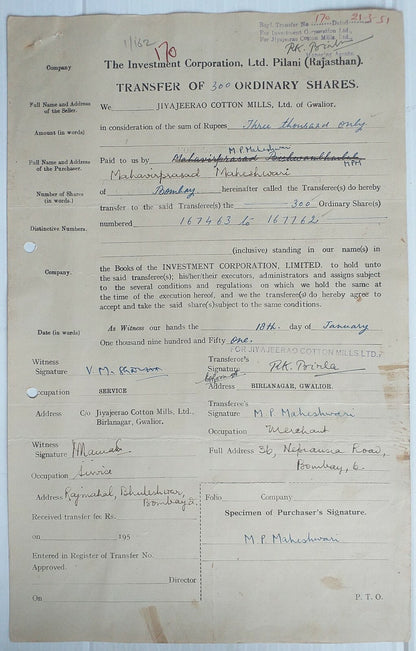 Regd. Transfer No 170 Dated 21-3-51
For Investment Corporation Ltd.,
For Jiyajeerao Cotton Mills, Ltd.,
R.K. Birla
Managing Agents
1/162
170
Company
The Investment Corporation, Ltd. Pilani (Rajasthan).
TRANSFER OF 300 ORDINARY SHARES.
Full Name and Address of the Seller.
We JIYAJEERAO COTTON MILLS, Ltd. of Gwalior.
Amount (in words)
in consideration of the sum of Rupees Three thousand only
M.P. Maheshwari
Full Name and Address of the Purchaser.
Paid to us by Mahavirprasad
MPM
Mahavirprasad Maheshwari
Number of Shares (in words.)
of Bombay hereinafter called the Transferee(s) do hereby
transfer to the said Transferee(s) the 300 Ordinary Share(s)
Distinctive Numbers.
numbered 167463 to 167762
(inclusive) standing in our name(s) in
Company.
the Books of the INVESTMENT CORPORATION, LIMITED. to hold unto
the said transferee(s); his/her/their executors, administrators and assigns subject
to the several conditions and regulations on which we held the same at
the time of the execution hereof, and we the transferee(s) do hereby agree to
accept and take the said share(s) subject to the same conditions.
Date (in words)
As Witness our hands the 18th. day of January
One thousand nine hundred and Fifty One.
FOR JIYAJEERAO COTTON MILLS LTD.
Witness Signature
Transferor's Signature R.K. Birla
Occupation SERVICE
Address BIRLANAGAR, GWALIOR.
Address C/o Jiyajeerao Cotton Mills. Ltd.,
Birlanagar, Gwalior.
Transferee's Signature M.P. Maheshwari
Occupation Merchant
Witness Signature
Full Address 36, Nepeansea Road,
Bombay, 6.
Occupation Service
Address Rajmahal, Bhuleshwar,
Bombay 2.
Folio Company
Received transfer fee Rs.
Specimen of Purchaser's Signature.
on 195
M.P. Maheshwari
Entered in Register of Transfer No.
Approved.
Director
On
P. T. O.